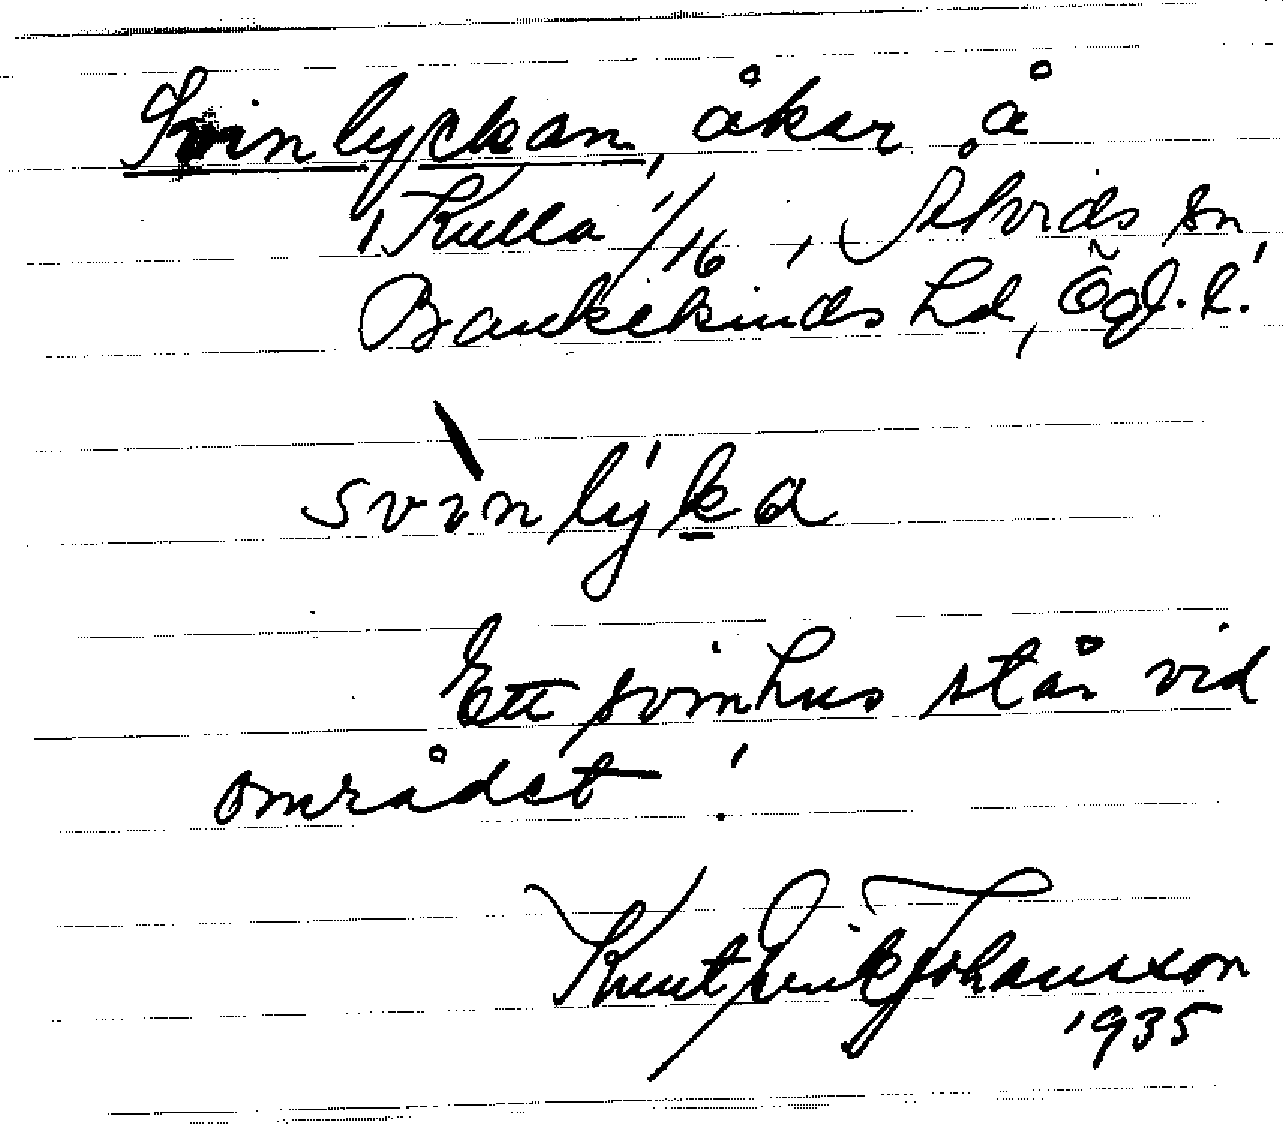 Svinlyckan, åker å
Kulla 1/16, Åtvids sn
Bankekinds hd, Ögl. l.
svìnlýka
Ett svinhus står vid
området!
Knut Erik Johansson
1935